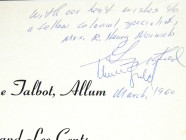 With our best wishes to
a fellow colonial specialist,
Mrs. R. Henry Norweb
March, 1960
e Talbot, Allum
and Lee Cents